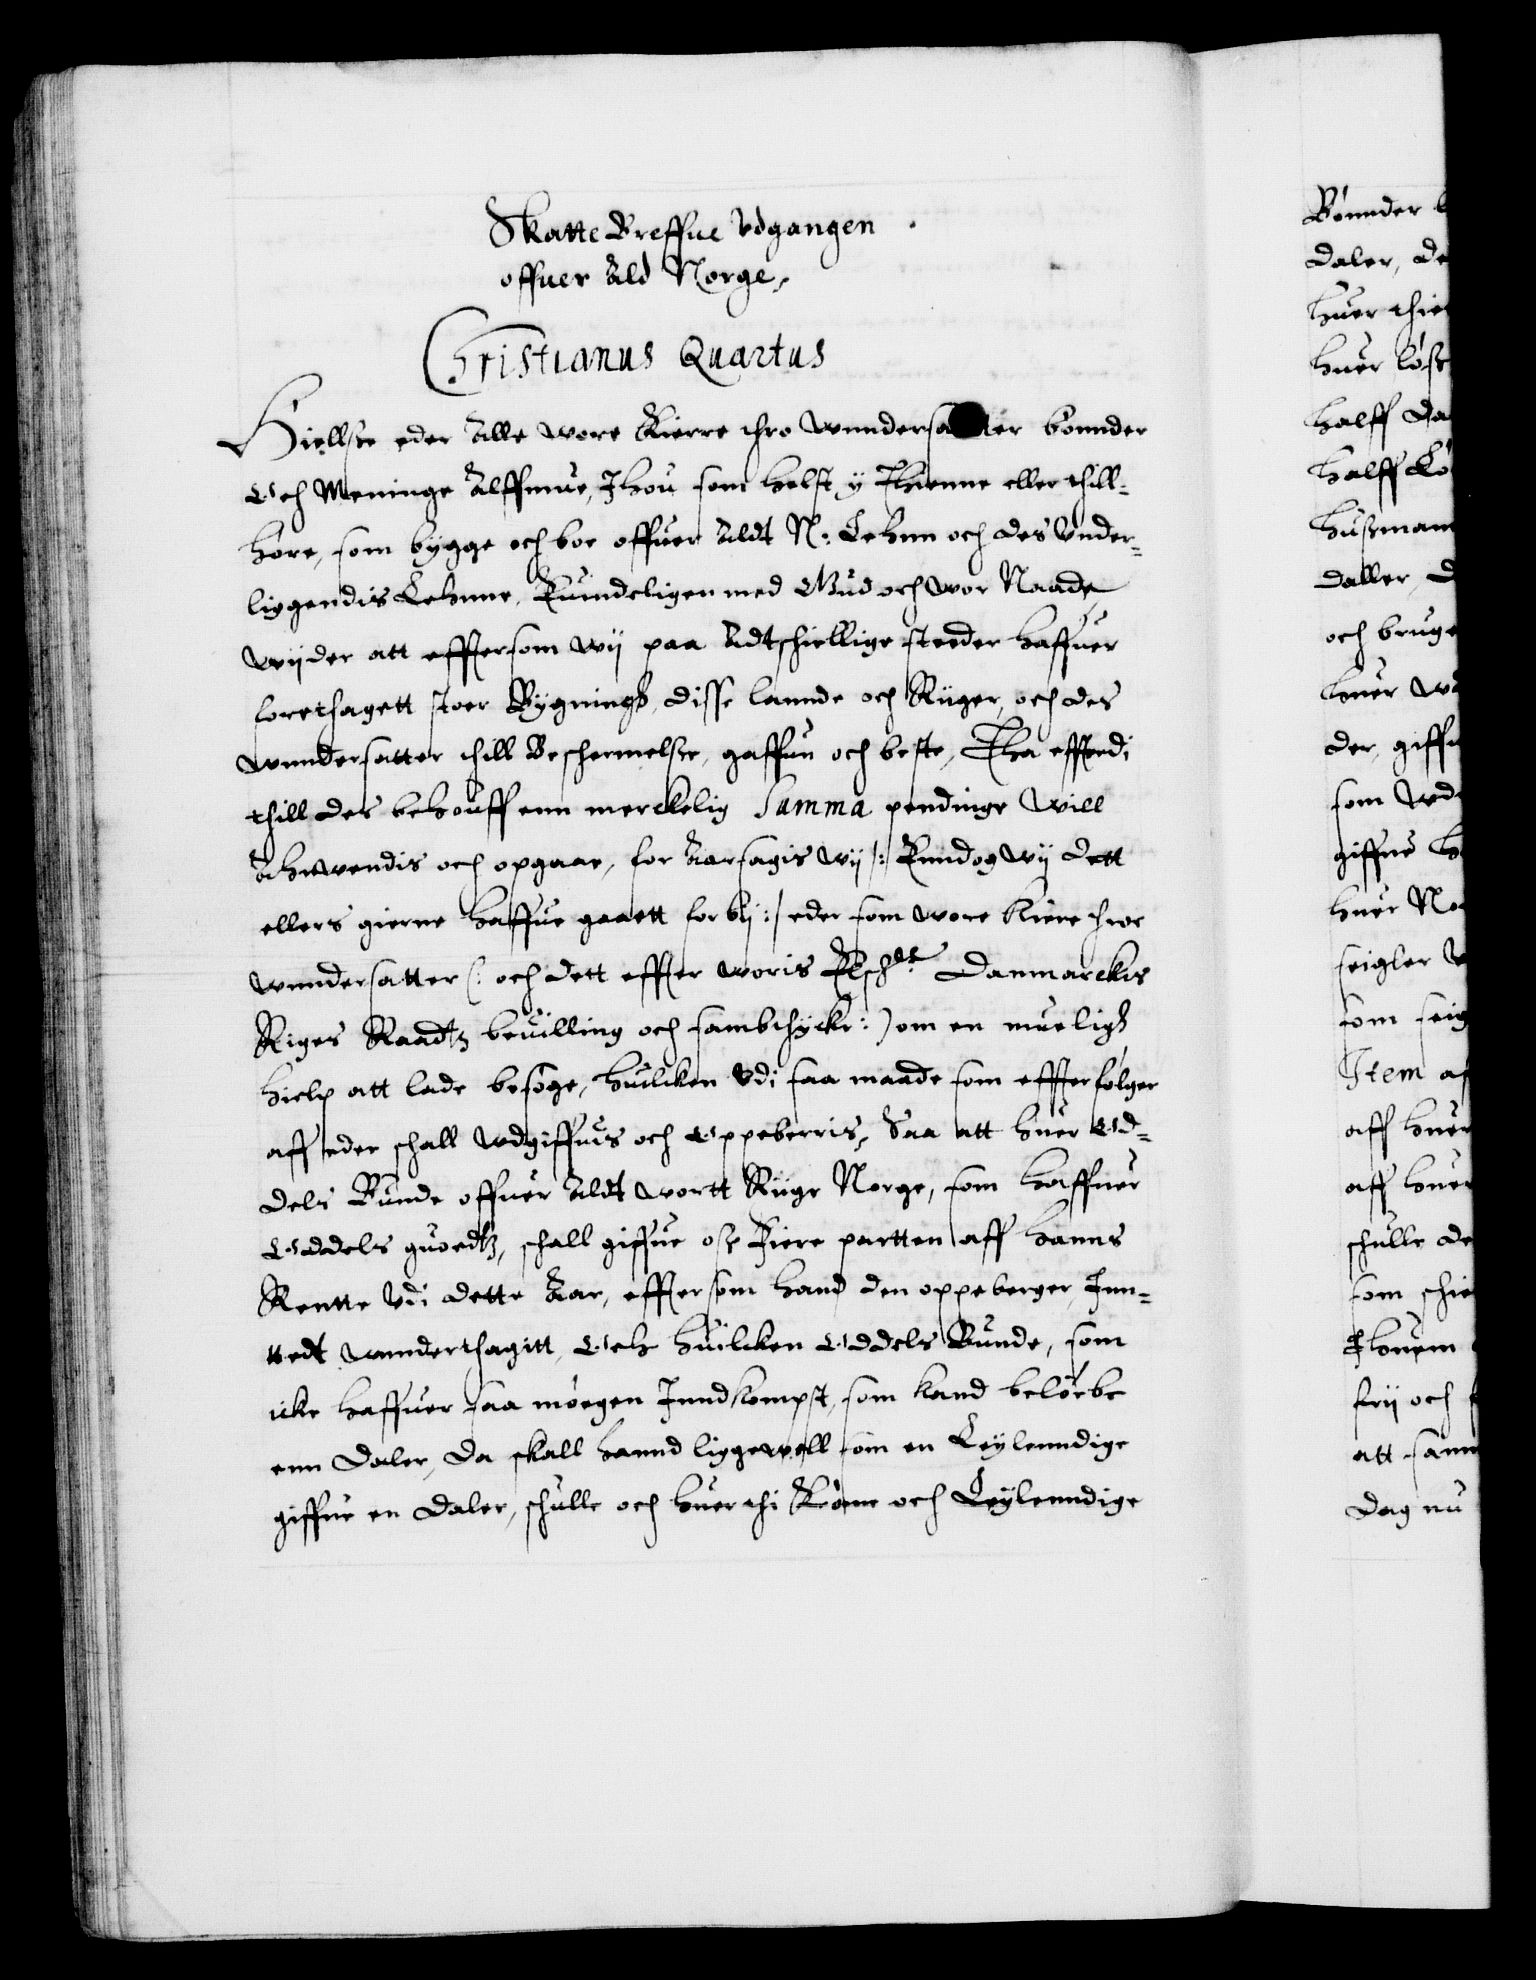 Skatte Breffue Udgangen
offuer Ald Norge,
Christianus Quartus
Hiellser eder Alle wore Kierre thro wnndersa er bønnder
Och Meninge Alffmue, Ihou som helst y Thienne eller thill-
høre, som bygge och boe offuer Aldt N: Lehnn och des Under-
liggendis Lehnne, Kuindeligen med Gud och wor Naade,
wijder att effttersom wij paa Adtschiellige steeder haffuer
forethagett stoer Bygningh, disse lannde och Riiger, och des
wnndersatter thill Beschermelse, gaffun och beste, Tha effterdi
thill des behouff enn merckelig Summa pendinge will
Ahnwendis och opgaar, for Aarsagis wij /: Enndog wij dett
ellers gierne haffue gaaett forbij :/ eder som wore kiere throe
wnndersatter (: och dett effter woris Elschl: Danmarckis
Riges Raadtz beuilling och sambthycke :) om en mueligh
hielp att lade besøge, huilcken Udi saa maade som effterfølger
aff eder schall wdgiffuis och Oppeberris, Saa att huer Od-
dels Bunde offuer Aldt wortt Riige Norge, som haffuer
Oddels guoedtz, schall giffue osz Fiere partten aff hanns
Rentte Udi dette Aar, effttersom hand den oppeberger, Inn-
tedt wnnderthagitt, Och huilcken Oddels Bunde, som
icke haffuer saa møegen Inndkompst, som kand beløebe
enn Daler, Da skall hannd liggewell som en Leylenndige
giffue en Daler, schulle och huer thi Krone och Leylenndige
Bønnder
daler, de
huer thie
huer løse
halff da
halff Lø
huszmann
daller, D
och bruge
huer w
der, giffu
som Ud
giffue h
huer No
seigler
som seig
Item af
aff huer
aff huer
schulle de
som schie
Ihouem
frij och
att samm
dag nu